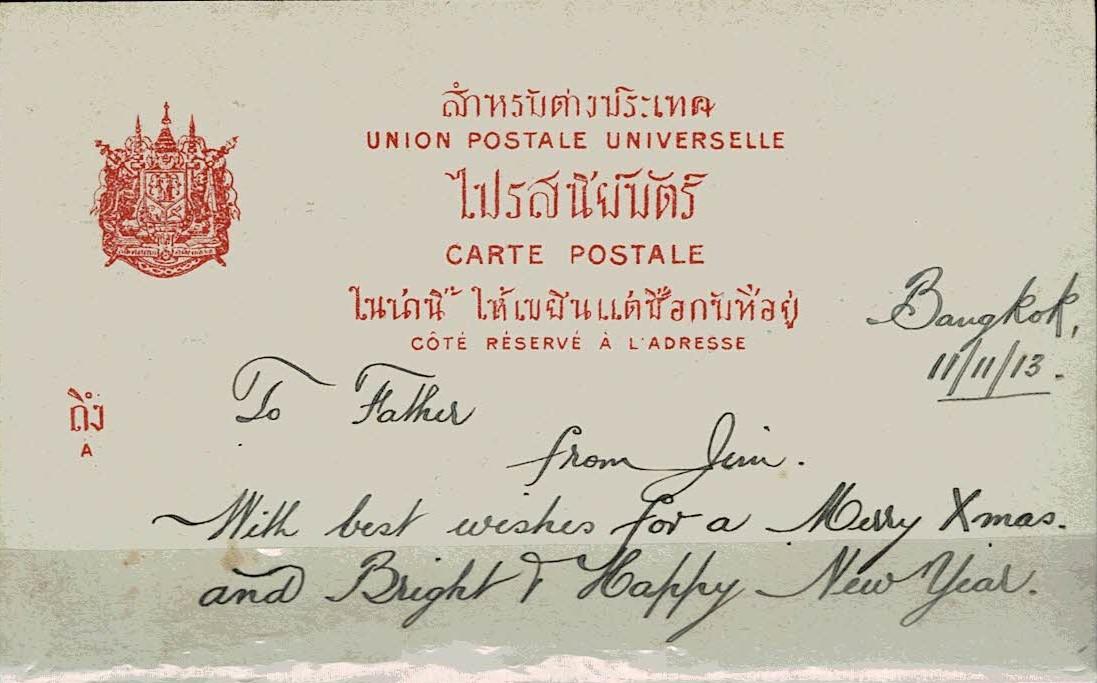 สำหรับต่างประเทศ
UNION POSTALE UNIVERSELLE
ไปรสนียบัตร์
CARTE POSTALE
ในน่านี้ ให้เขียนแต่ชื่อกับที่อยู่
CÔTÉ RÉSERVÉ À L'ADRESSE
Bangkok,
11/11/13.
ถึง
A
To Father
from Jim.
With best wishes for a Merry Xmas.
and Bright & Happy New Year.